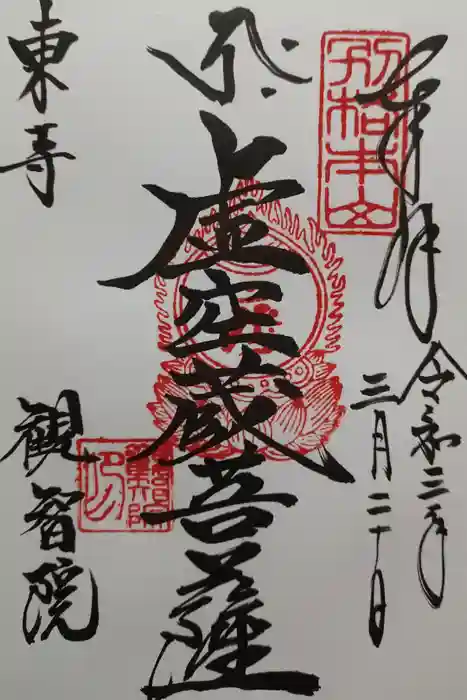 奉拝
令和三年
三月二十日
別格本山
虚空蔵菩薩
東寺
観智院